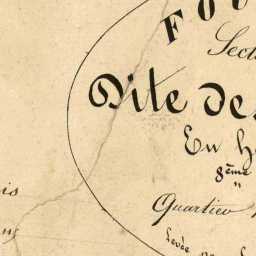 FOU
Sect
Dite de
En h
8ème
"
Quartier
levée
is